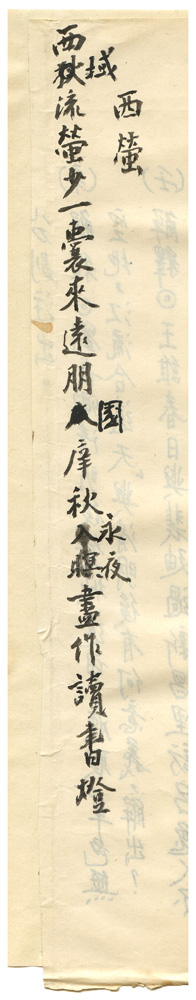 西螢
西域流螢少一囊來遠朋國庠秋永夜盡作讀書燈